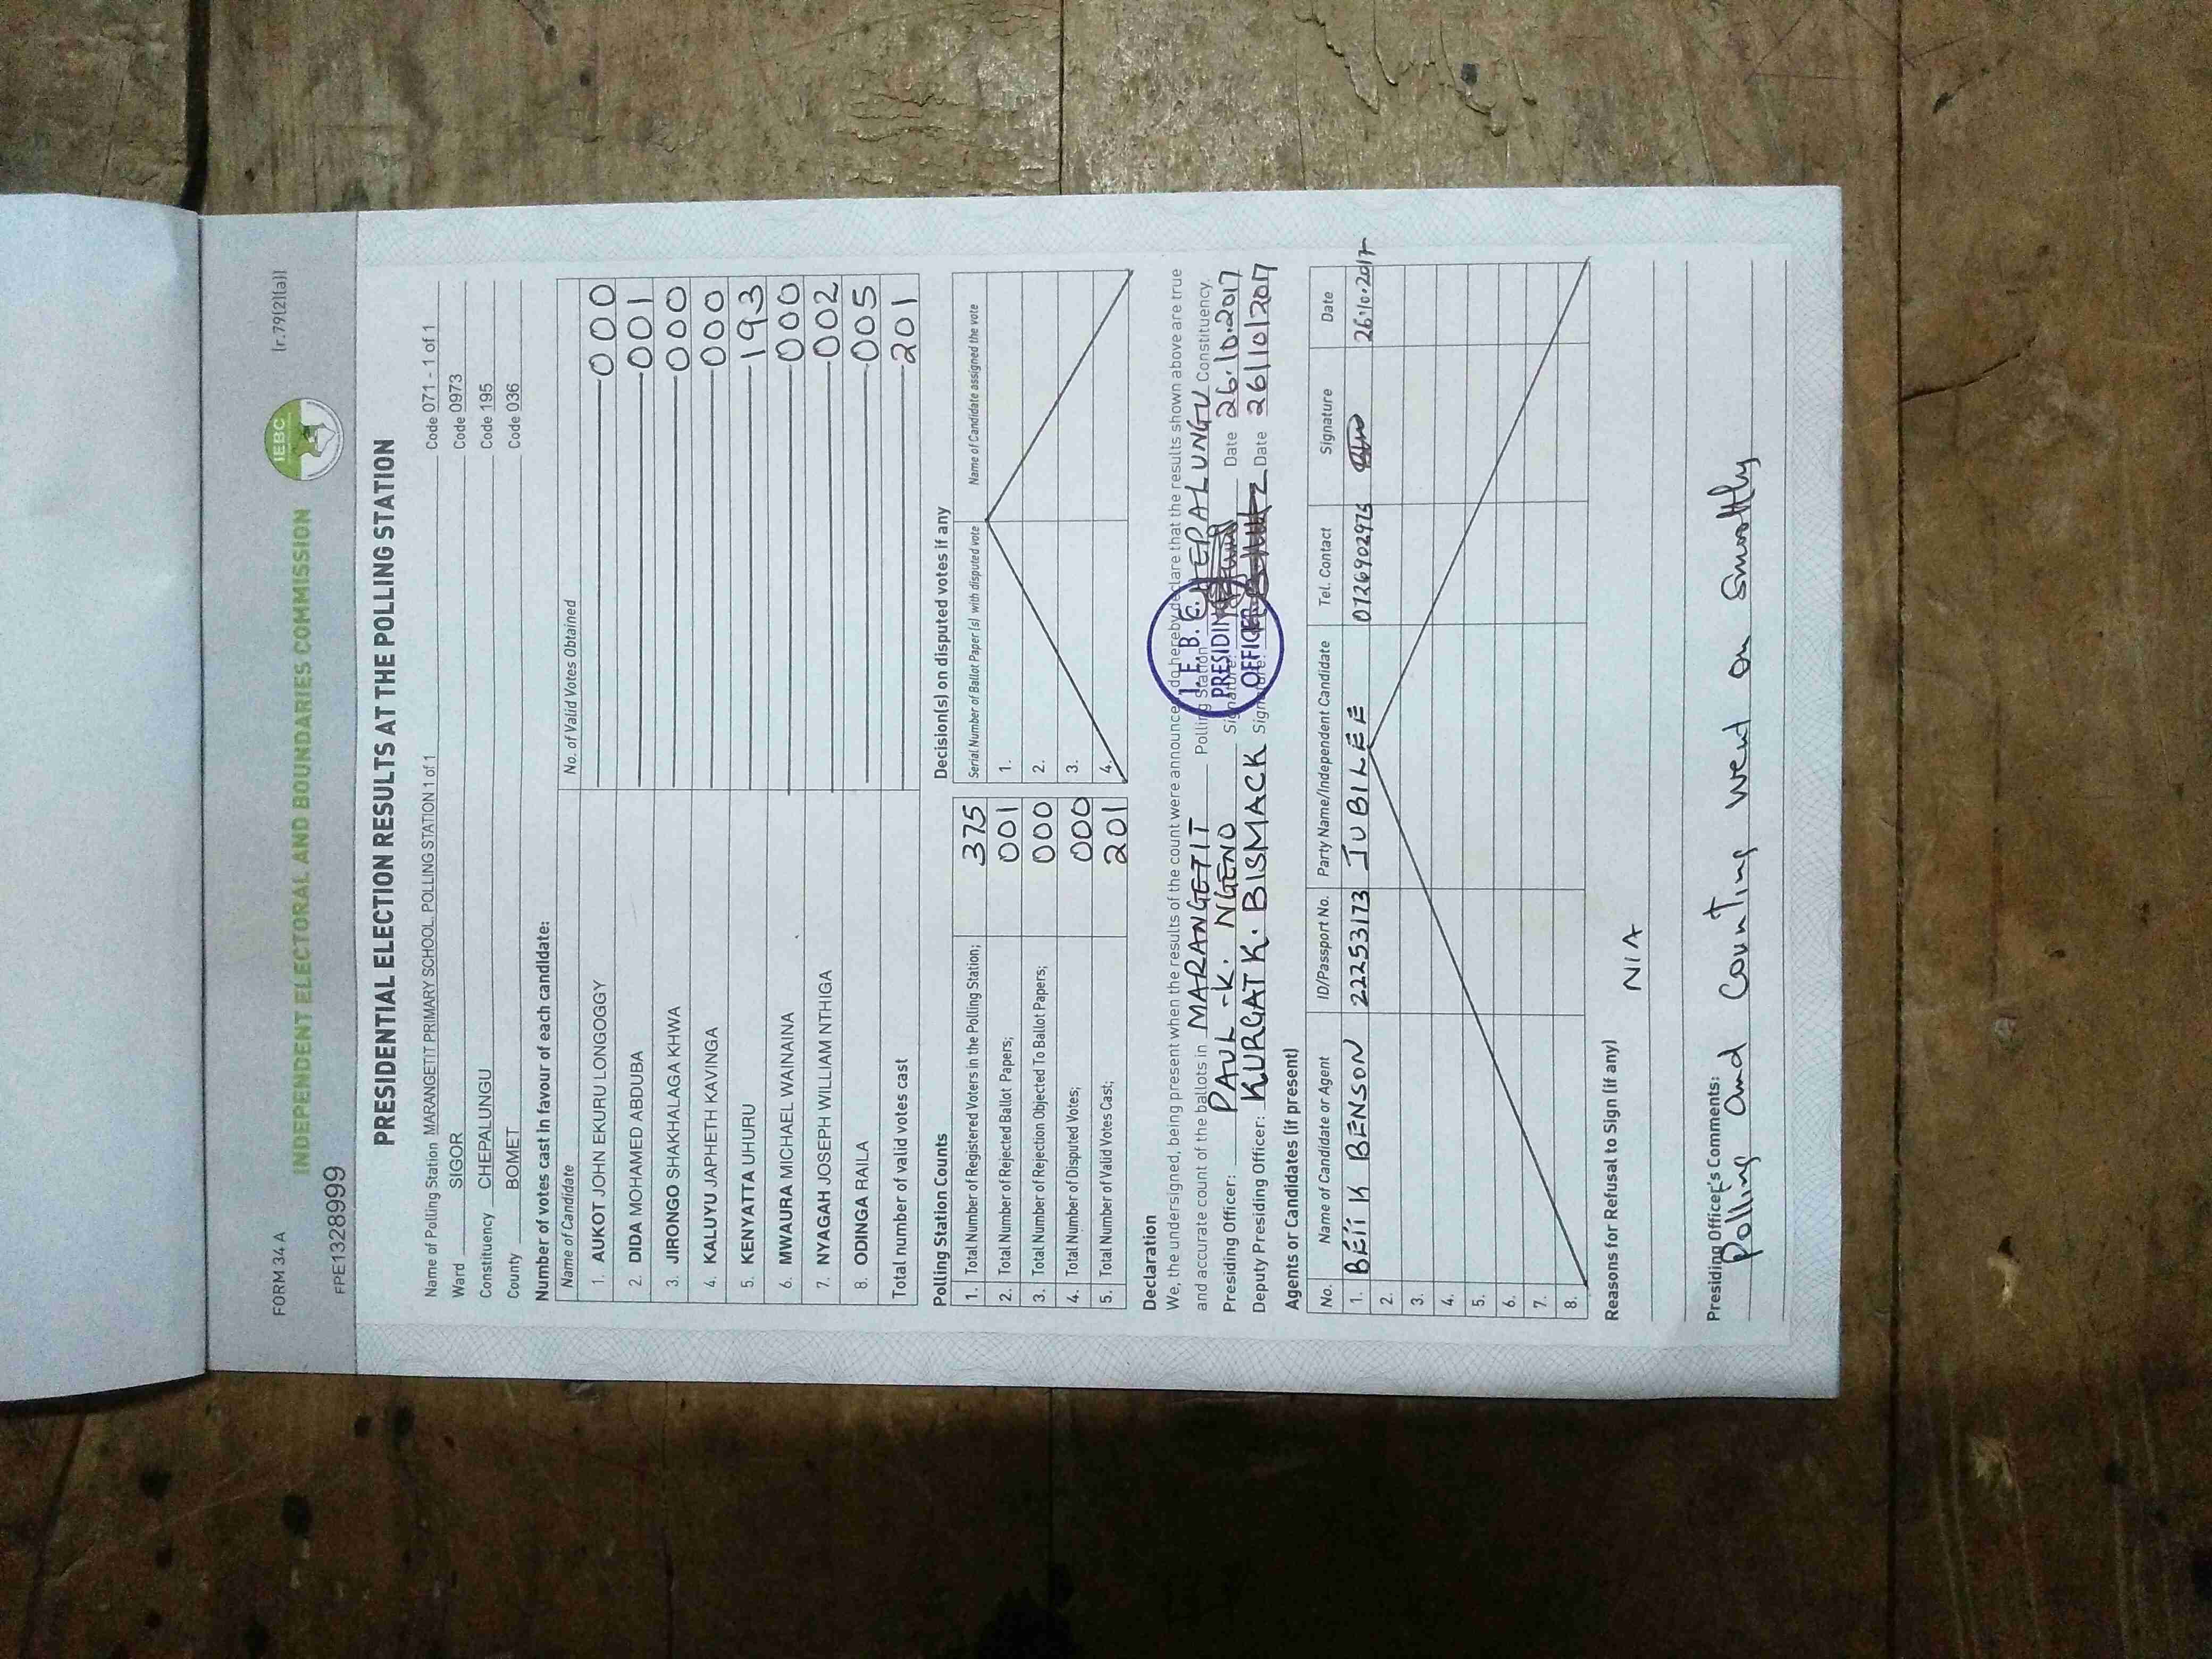 FORM 34 A
[r.79(2)(a)]
INDEPENDENT ELECTORAL AND BOUNDARIES COMMISSION
IEBC
FPE1328999
PRESIDENTIAL ELECTION RESULTS AT THE POLLING STATION
Name of Polling Station MARANGETIT PRIMARY SCHOOL. POLLING STATION 1 of 1 Code 071 - 1 of 1
Ward SIGOR Code 0973
Constituency CHEPALUNGU Code 195
County BOMET Code 036
Number of votes cast in favour of each candidate:
Name of Candidate No. of Valid Votes Obtained
1. AUKOT JOHN EKURU LONGOGGY 000
2. DIDA MOHAMED ABDUBA 001
3. JIRONGO SHAKHALAGA KHWA 000
4. KALUYU JAPHETH KAVINGA 000
5. KENYATTA UHURU 193
6. MWAURA MICHAEL WAINAINA 000
7. NYAGAH JOSEPH WILLIAM NTHIGA 002
8. ODINGA RAILA 005
Total number of valid votes cast 201
Polling Station Counts
1. Total Number of Registered Voters in the Polling Station; 375
2. Total Number of Rejected Ballot Papers; 001
3. Total Number of Rejection Objected To Ballot Papers; 000
4. Total Number of Disputed Votes; 000
5. Total Number of Valid Votes Cast; 201
Decision(s) on disputed votes if any
Serial Number of Ballot Paper(s) with disputed vote Name of Candidate assigned the vote
1.
2.
3.
4.
Declaration
We, the undersigned, being present when the results of the count were announced do hereby declare that the results shown above are true
and accurate count of the ballots in MARANGETIT Polling Station CHEPALUNGU Constituency.
Presiding Officer: PAUL -K. NGENO Signature Date 26.10.2017
Deputy Presiding Officer: KURGAT K. BISMACK Signature Date 26/10/2017
I. E. B. C.
PRESIDING
OFFICER
Agents or Candidates (if present)
No. Name of Candidate or Agent ID/Passport No. Party Name/Independent Candidate Tel. Contact Signature Date
1. BEII K BENSON 22253173 JUBILEE 26.10.2017
2.
3.
4.
5.
6.
7.
8.
Reasons for Refusal to Sign (if any)
N/A
Presiding Officer's Comments:
Polling and Counting went on Smoothly